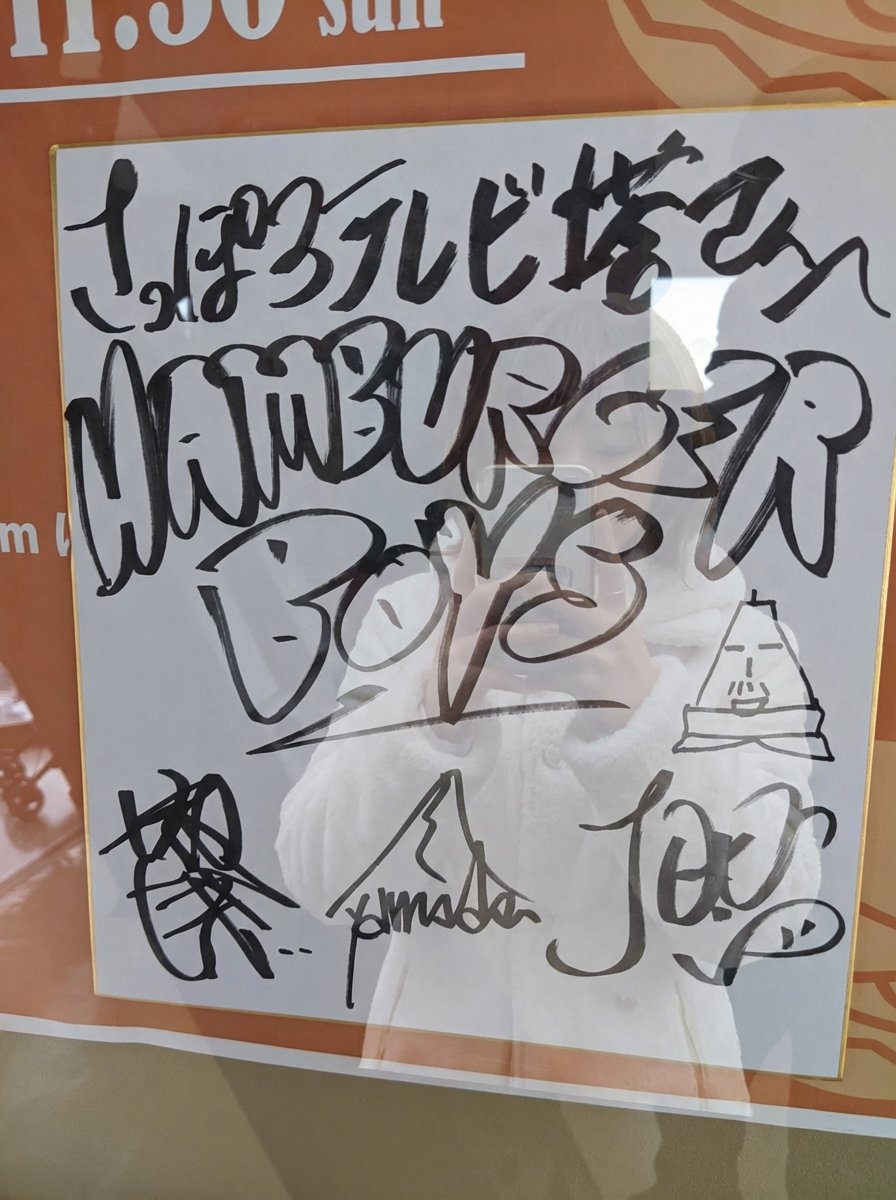 11.30 sun
さっぽろテレビ塔さんへ
HAMBURGER
BOYS
yamada